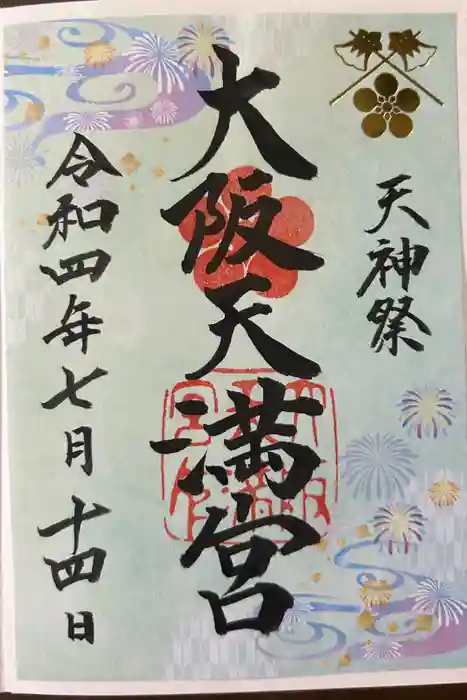 天神祭
大阪天満宮
令和四年七月十四日